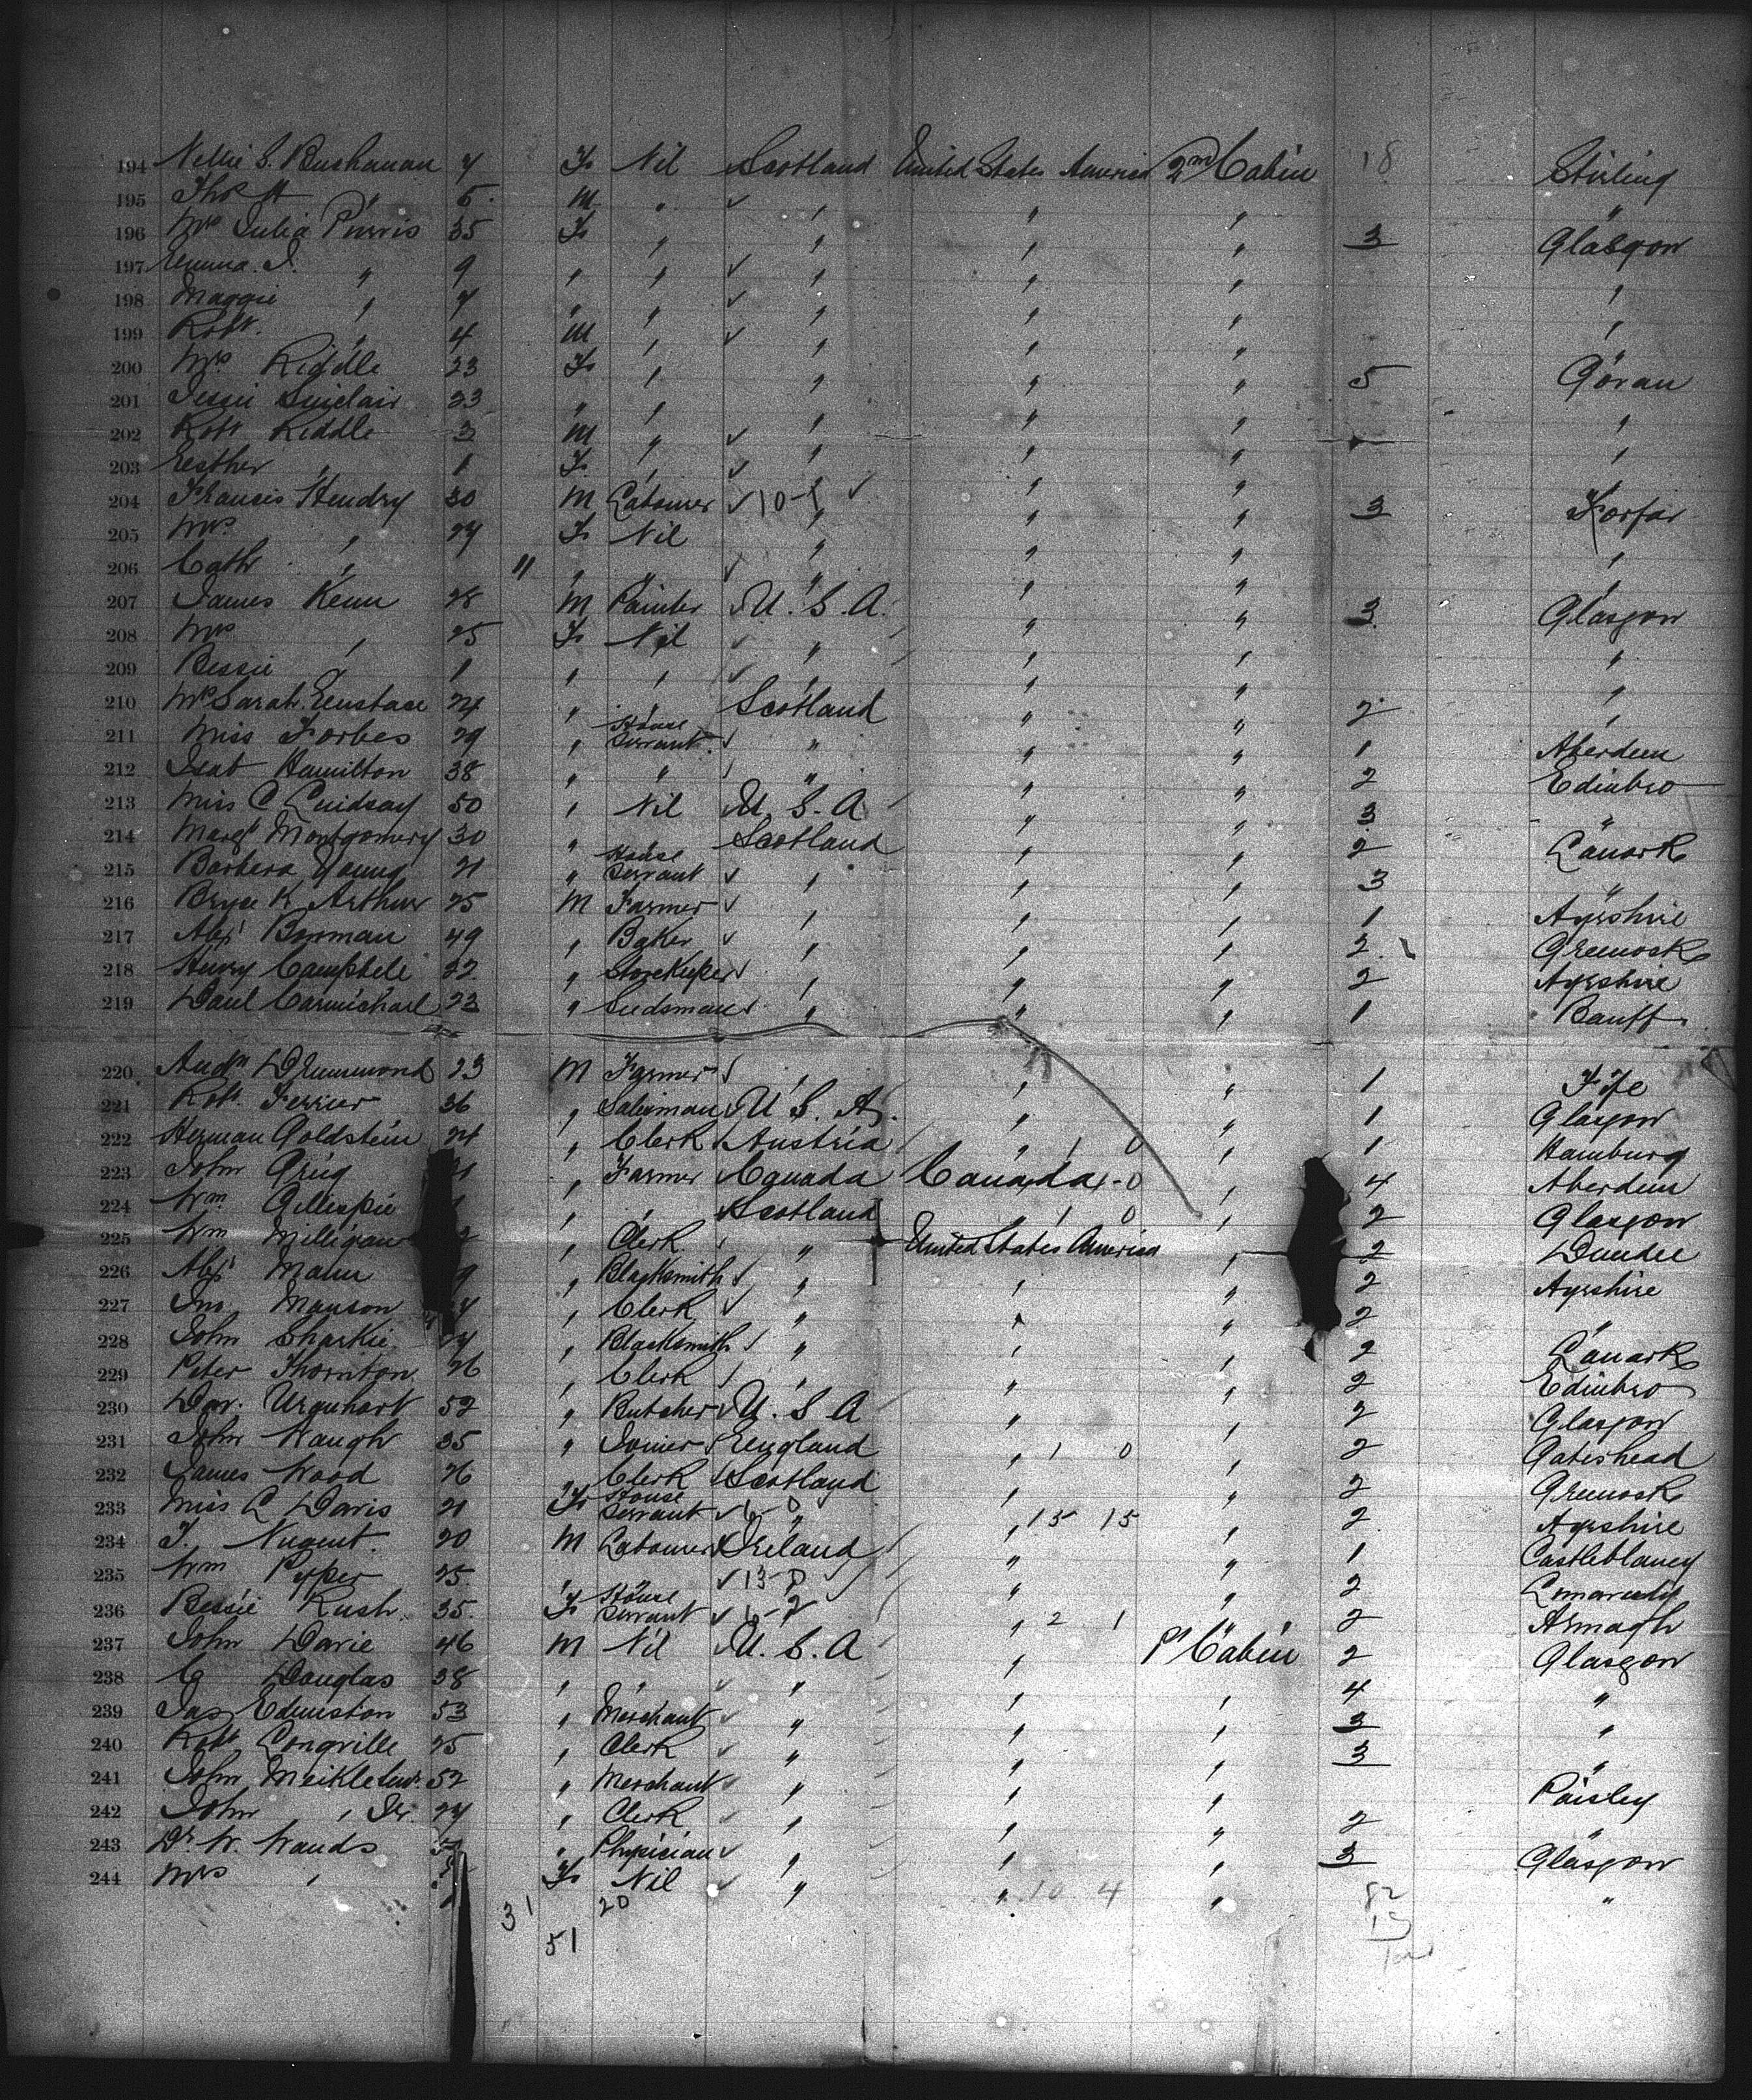 194 Nellie S. Buchanan 7 F Nil Scotland United States America 2nd Cabin 18 Stirling
195 Thos H " 5 M " ✓ " " " "
196 Mrs Julia Purvis 35 F " " " " 3 Glasgow
197 Emma J. " 9 " " ✓ " " " "
198 Maggie " 7 " " ✓ " " " "
199 Robt. " 4 M " ✓ " " " "
200 Mrs Riddle 23 F " " " " 5 Govan
201 Jessie Sinclair 23 " " " " " "
202 Robt Riddle 3 M " ✓ " " " "
203 Esther " 1 F " ✓ " " "
204 Francis Hendry 30 M Labourer ✓ 10-1 ✓ " " " 3 Forfar
205 Mrs " 27 F Nil " " " "
206 Cath " 11 " " ✓ " " " "
207 James Kenn 28 M Painter ✓ U. S. A. " " 3 Glasgow
208 Mrs " 25 F Nil ✓ " " " "
209 Bessie " 1 " " ✓ " " " "
210 Mrs Sarah Eustace 24 " " Scotland " " 2 "
211 Miss Forbes 29 " House Servant ✓ " " " 1 Aberdeen
212 Isab Hamilton 38 " " " " " 2 Edinbro
213 Miss C Lindsay 50 " Nil U. S. A " " 3 "
214 Margt Montgomery 30 " Scotland " " 2 Lanark
215 Barbera Young 21 " House Servant ✓ " " " 3 "
216 Bryce K Arthur 25 M Farmer ✓ " " " 1 Ayrshire
217 Alexr Bowman 49 " Baker ✓ " " " 2 Greenock
218 Henry Campbell 32 " Storekeeper ✓ " " " 2 Ayrshire
219 Danl Carmichael 23 " Seedsman " " " 1 Banff
220 Andw Drummond 23 M Farmer " " " 1 Fife
221 Robt. Ferrier 36 " Salesman U. S. A. " " 1 Glasgow
222 Herman Goldstein 24 " Clerk Austria " 1 0 " 1 Hamburg
223 John Greig " Farmer Canada Canada 1-0 " 4 Aberdeen
224 Wm. Gillespie " " Scotland " 1 0 " 2 Glasgow
225 Wm Milligan " Clerk " United States America " 2 Dundee
226 Alexr Mann " Blacksmith ✓ " " " 2 Ayrshire
227 Jno. Manson " Clerk ✓ " " " 2 "
228 John Sharkie 24 " Blacksmith " " " 2 Lanark
229 Peter Thornton 26 " Clerk " " " 2 Edinbro
230 Dav. Urquhart 52 " Butcher U. S A " " 2 Glasgow
231 John Waugh 35 " Joiner England " 1 0 " 2 Gateshead
232 James Wood 26 " Clerk Scotland " " 2 Greenock
233 Miss C Davis 21 F House Servant ✓ " " 15 15 " 2 Ayrshire
234 T. Nugent. 20 M Labourer Ireland " " 1 Castleblaney
235 Wm Pyper 25. " " ✓ 13- " " 2
236 Bessie Rush. 35. F House Servant ✓ 6-2 " 2 1 " 2 Armagh
237 John Davie 46 M Nil U. S. A " 1st Cabin 2 Glasgow
238 C Douglas 38 " " ✓ " " " 4 "
239 Jas Edmiston 53 " Merchant ✓ " " " 3 "
240 Robt Longville 25 " Clerk ✓ " " " 3 "
241 John Meiklem 52 " Merchant ✓ " " " Paisley
242 John " Jr. 24 " Clerk ✓ " " " 2 "
243 Dr. W. Wands " Physician ✓ " " " 3 Glasgow
244 Mrs " F Nil ✓ " " 10 4 " 82 "
31 20 13
51